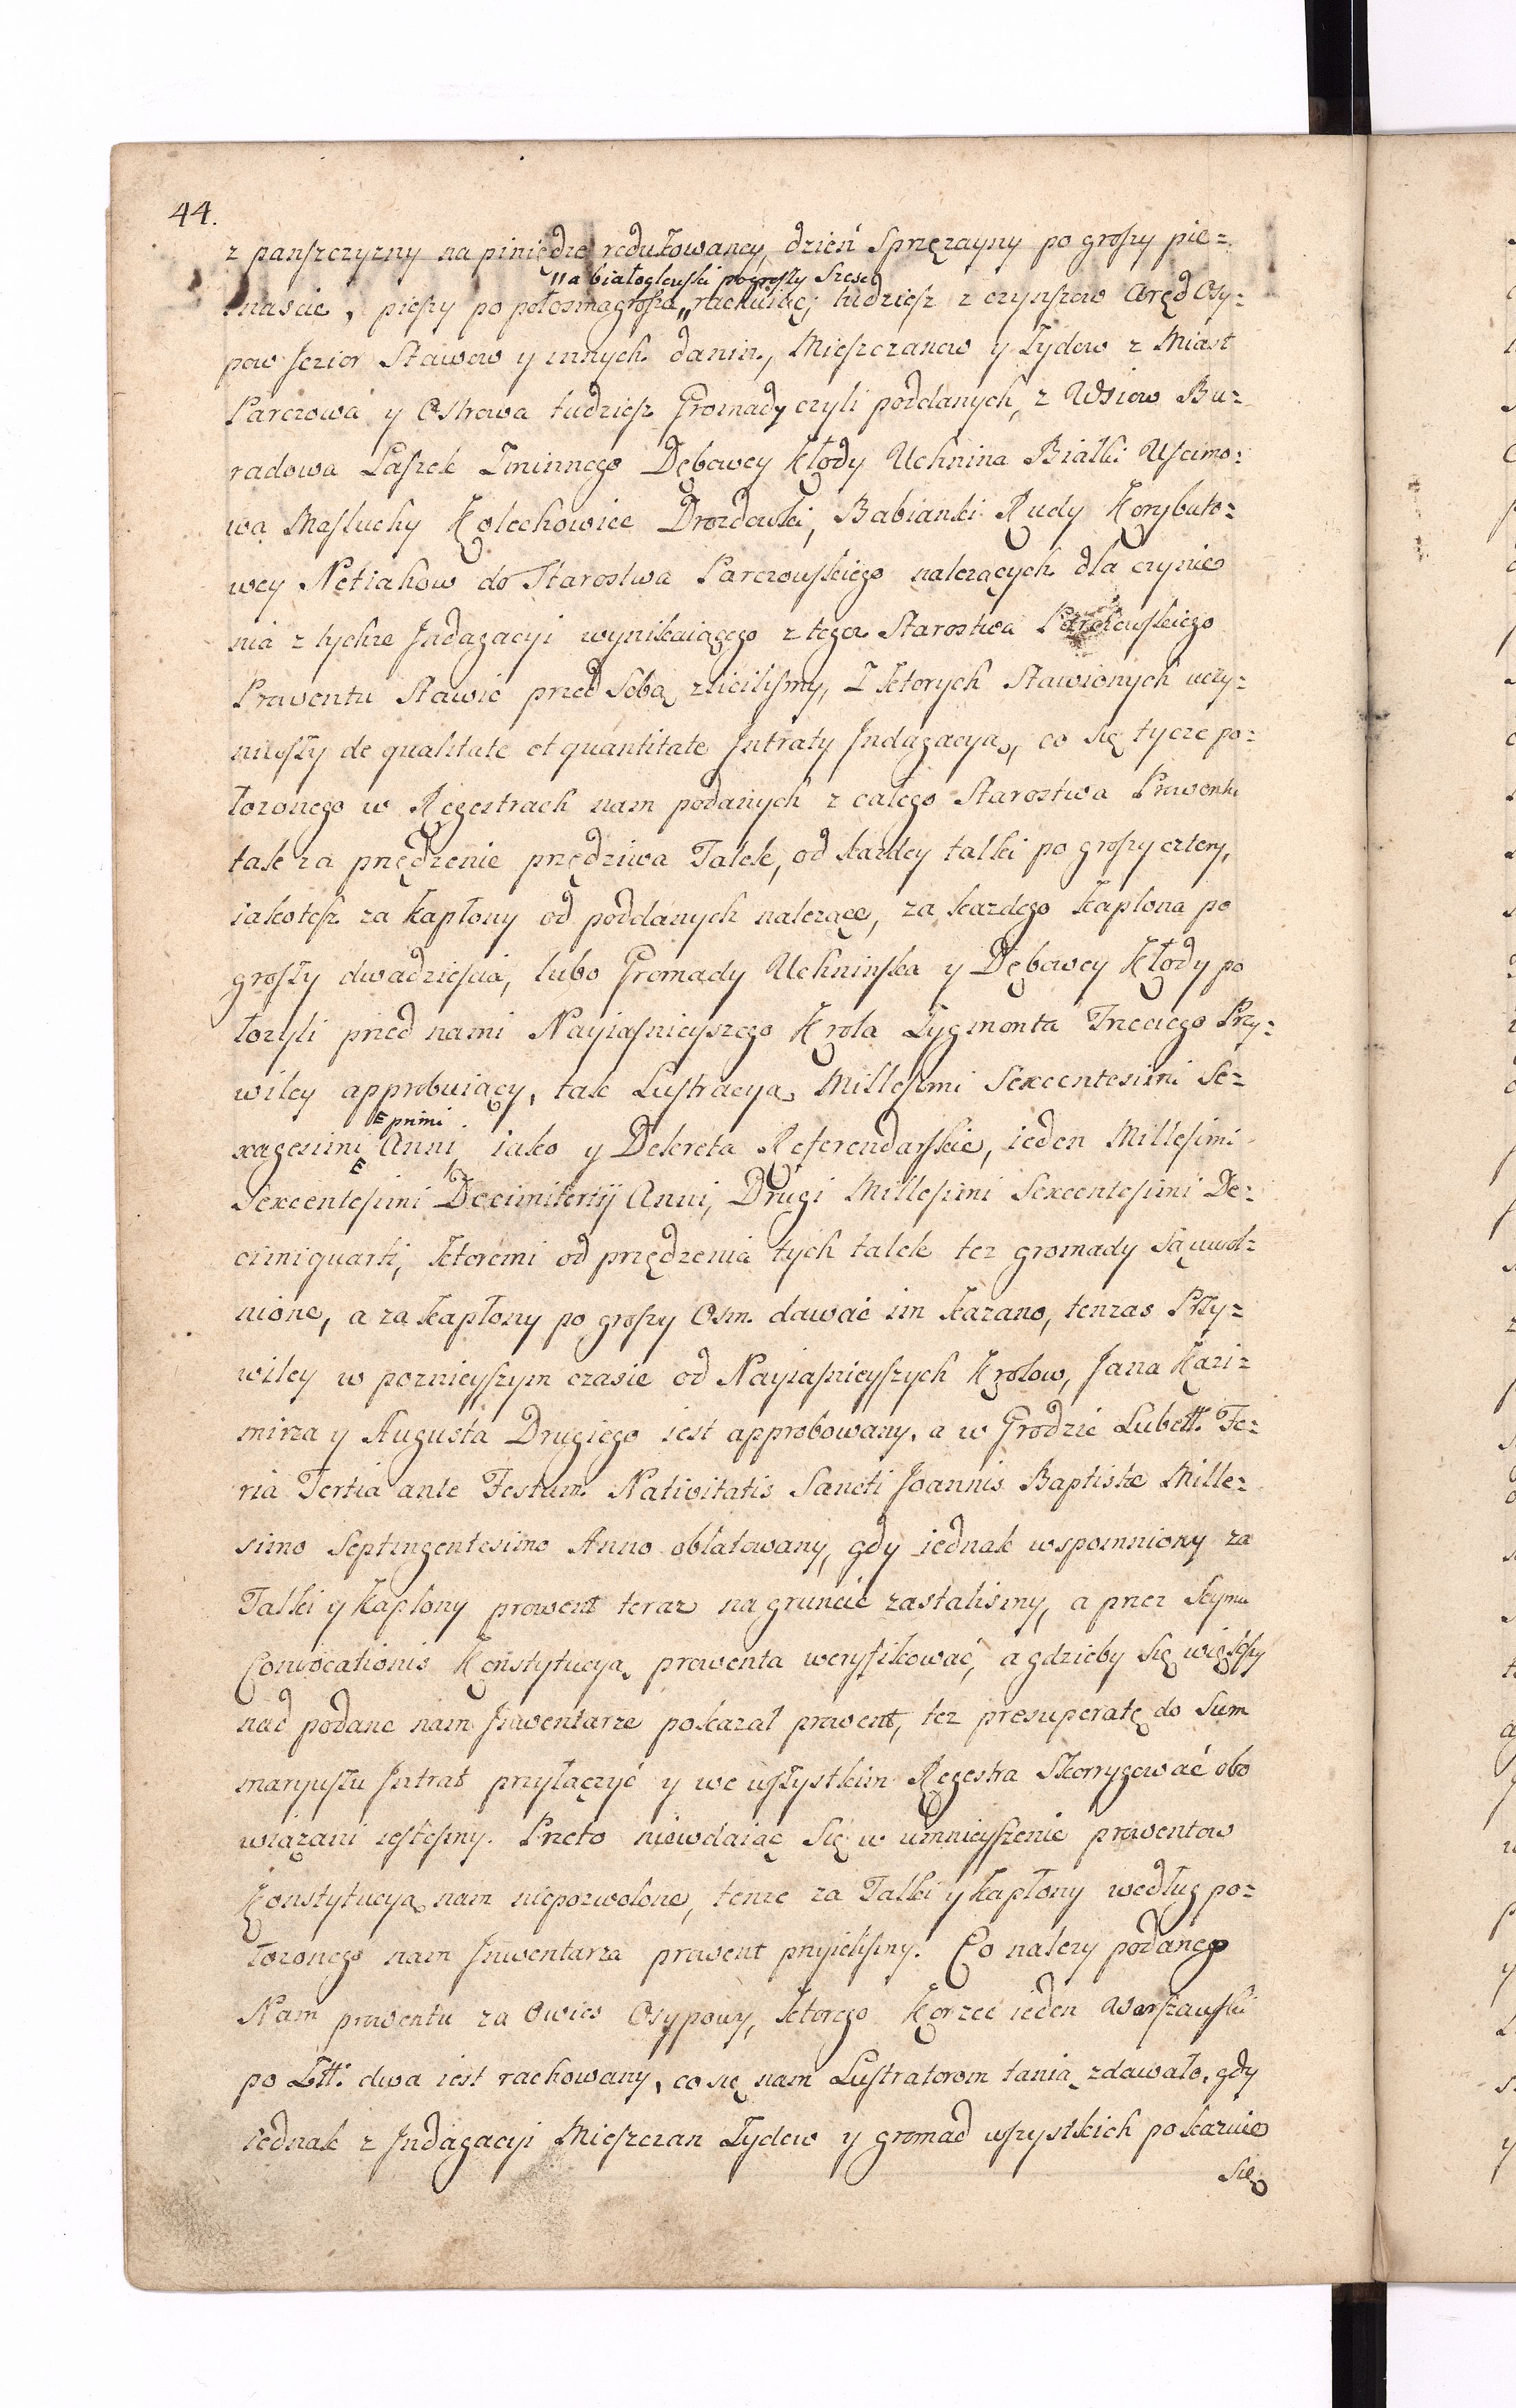 44.
z panszczyzny na piniędze redukowaney, dzień Sprzęzayny po groszy pie=
„a białogłowski po groszy szesc
tnascie, pieszy po połosmagrosza„ rachuiąc; tudziesz z czynszow Aręd Osy=
pow Jezior Stawow y innych danin, Mieszczanow y Zydow z Miast
Parczowa y Ostrowa tudziesz Gromady czyli poddanych, z Wsiow Bu=
radowa Laszek Zminnego Dębowey Kłody Uchnina Białki Uscimo=
wa Masluchy Kolechowice Drozdowki, Babianki Rudy Korybuto=
wey Netiahow do Starostwa Parczowskiego nalezących dla czynie
nia z tychze Indagacyi wynikaiącego z tegoz Starostwa Parczowskiego
Prowentu Stawic przed Sobą zliciliſmy, Z ktorych Stawionych uczy=
niwszy de qualitate et quantitate Intraty Indagacyą, co się tycze po=
łozonego w Regestrach nam podanych z całego Starostwa Prowentu
tak za przędzenie przędziwa Talek, od kazdey talki po groszy cztery,
iakotesz za kapłony od poddanych nalezące, za kazdego kapłona po
groszy dwadziescia, lubo Gromady Uchninska y Dębowey Kłody po
łozyli przed nami Nayiasnieyszego Krola Zygmonta Trzeciego Przy=
wiley approbuiący, tak Lustracya Millesimi Sexcentesimi Se=
primi
xagesimi Anni, iako y Dekreta Referendarskie, ieden Millesimi
Sexcentesimi Decimitertij Anni, Drugi Millesimi Sexcentesimi De=
cimiquarti, ktoremi od przędzenia tych talek tez gromady są uwol=
nione, a za kapłony po groszy Osm dawać im kazano, tenzas Przy=
wiley w poznieyszym czasie od Nayiasnieyszych Krolow, Jana Kazi=
mirza y Augusta Drugiego iest approbowany, a w Grodzie Lubell. Fe=
ria Tertia ante Festum Nativitatis Sancti Joannis Baptistæ Mille=
simo Septingentesimo Anno oblatowany, gdy iednak wspomniony za
Talki y kapłony prowent teraz na gruncie zastalismy, a przez Seymu
Convocationis Konstytucyą prowenta weryfikować, a gdzieby się większy
nad podane nam Inwentarze pokazał prowent, tez presuperatę do Sum
maryuszu Intrat przyłączyć y we wszystkim Regestra Skorrygować obo
wiązani iestesmy. Przeto niewdaiąc się w umnieyszenie prowentow
Konstytucyą nam niepozwolone, tenze za Talki y kapłony według po=
łozonego nam Inwentarza prowent przyieliſmy. Co nalezy podanego
Nam prowentu za Owies Osypowy, ktorego Korzec ieden Warszawski
po Złł: dwa iest rachowany, co się nam Lustratorom tanią zdawało, gdy
iednak z Indagacyi Mieszczan Zydow y gromad wszystkich pokazuie
się